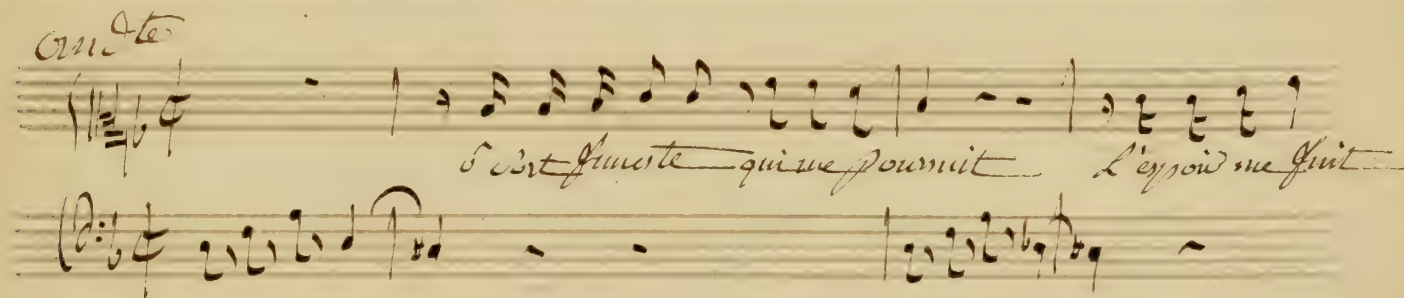 And^te
o sort funeste qui me poursuit l'espoir me fuit